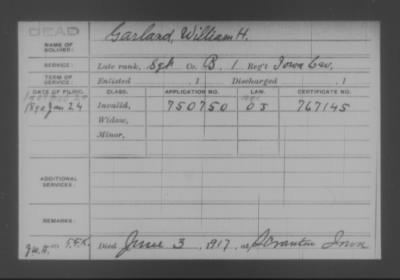 DEAD
NAME OF SOLDIER: Garland, William H.
SERVICE: Late rank, Sgt Co. B, 1 Reg't Iowa Cav.
TERM OF SERVICE: Enlisted , 1 Discharged , 1
DATE OF FILING. CLASS. APPLICATION NO. LAW. CERTIFICATE NO.
1890 Jan 24 Invalid, 750750 767145
Widow,
Minor,
ADDITIONAL SERVICES:
REMARKS:
Died June 3, 1917, at Scranton Iowa